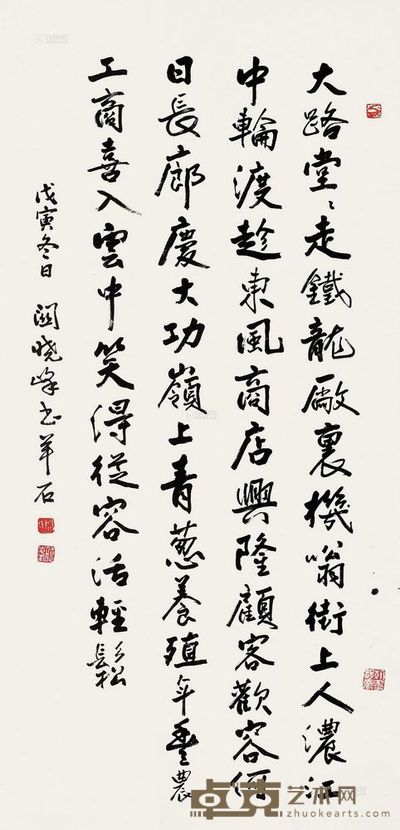 大路堂〻走鐵龍廠裏機嗡街上人濃江
中輪渡趁東風商店興隆顧客歡容何
日長廊慶大功嶺上青葱養殖年豐農
工商喜入雲中笑得從容活輕鬆
戊寅冬日 晓峰书羊石
卓克艺术网
zhuokearts.com